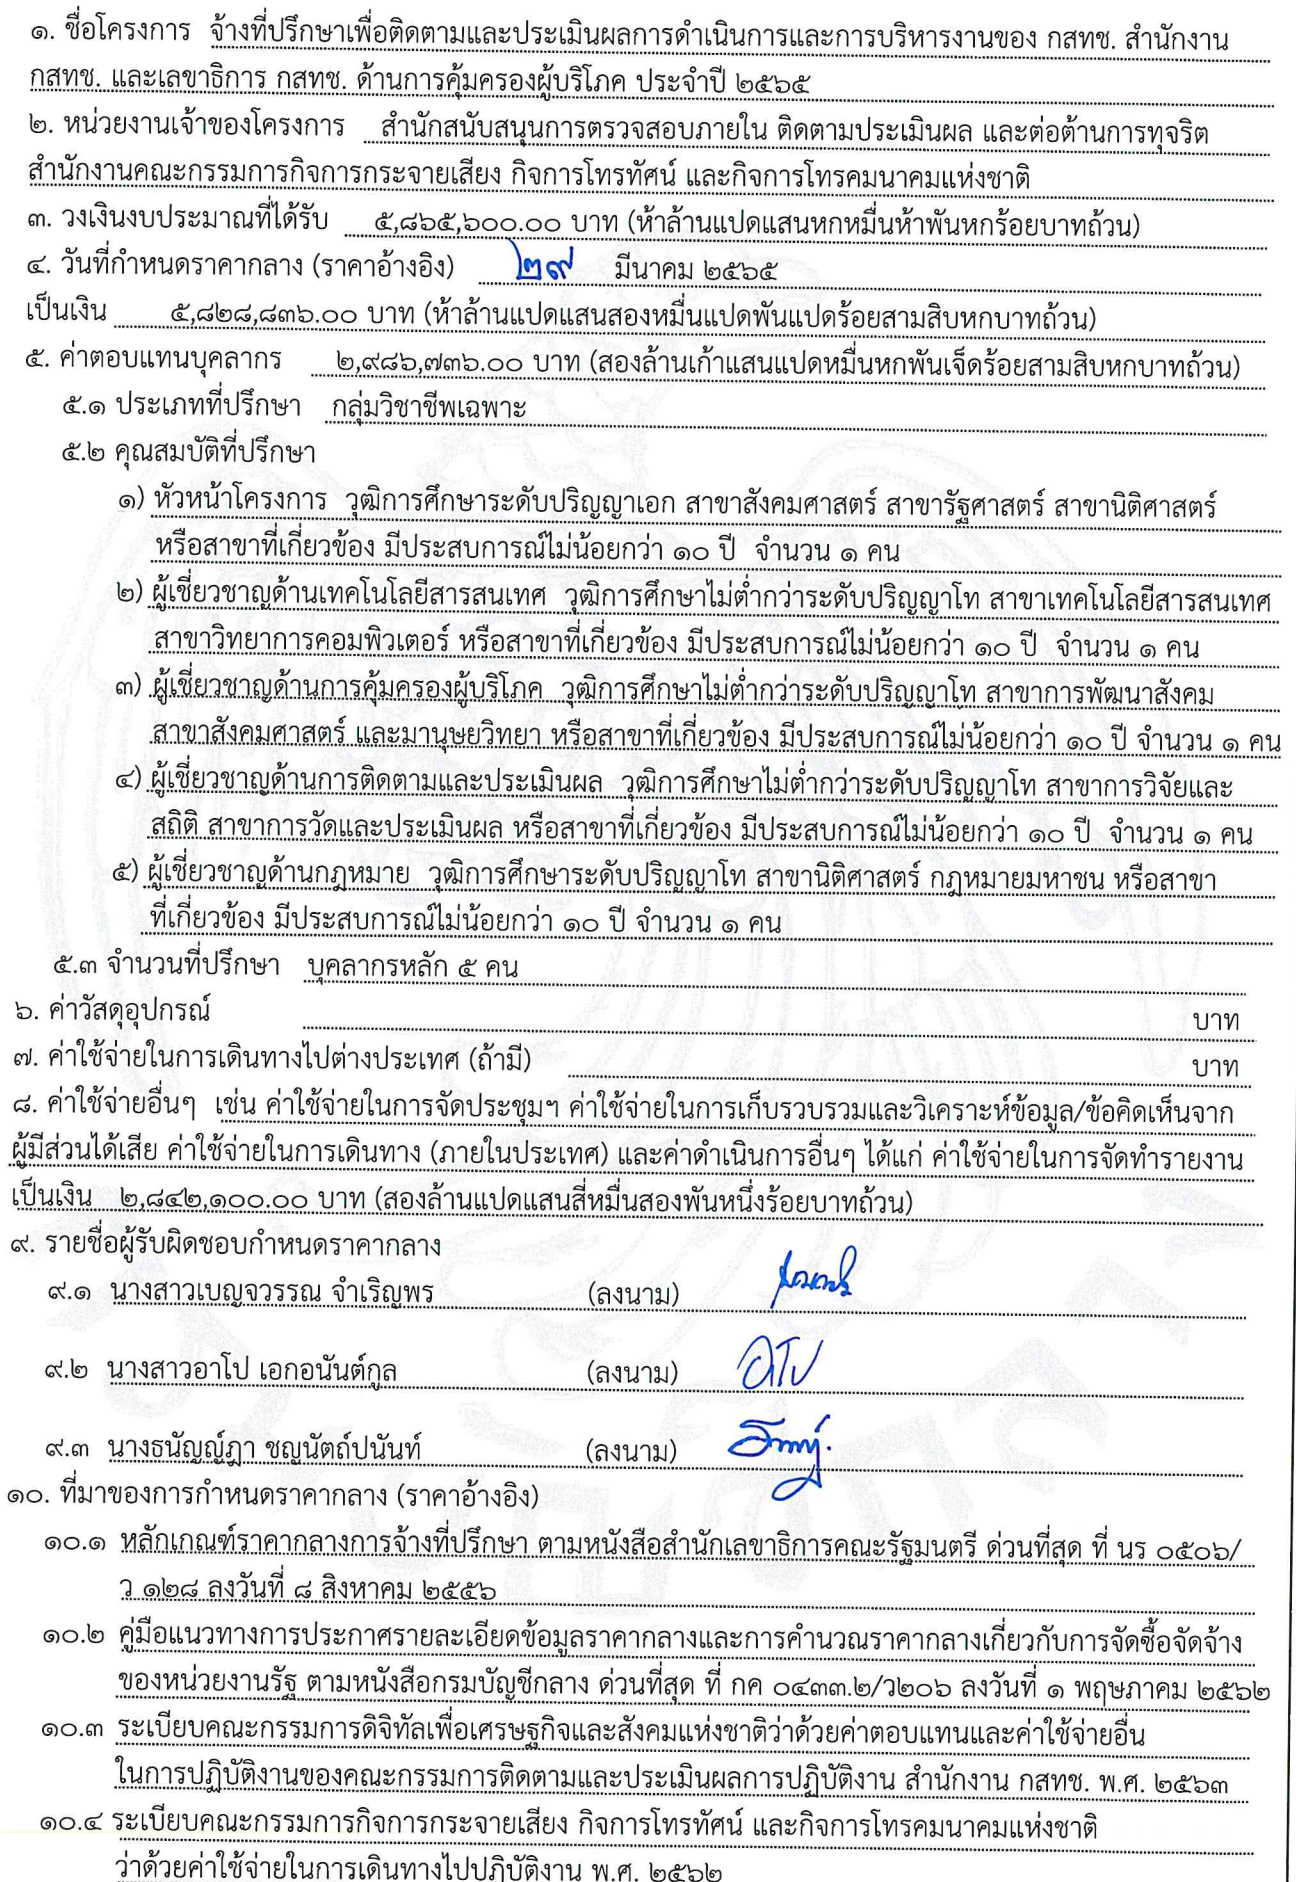 ๑. ชื่อโครงการ จ้างที่ปรึกษาเพื่อติดตามและประเมินผลการดำเนินการและการบริหารงานของ กสทช. สำนักงาน
กสทช. และเลขาธิการ กสทช. ด้านการคุ้มครองผู้บริโภค ประจำปี ๒๕๖๕
๒. หน่วยงานเจ้าของโครงการ สำนักสนับสนุนการตรวจสอบภายใน ติดตามประเมินผล และต่อต้านการทุจริต
สำนักงานคณะกรรมการกิจการกระจายเสียง กิจการโทรทัศน์ และกิจการโทรคมนาคมแห่งชาติ
๓. วงเงินงบประมาณที่ได้รับ ๕,๘๖๕,๖๐๐.๐๐ บาท (ห้าล้านแปดแสนหกหมื่นห้าพันหกร้อยบาทถ้วน)
๔. วันที่กำหนดราคากลาง (ราคาอ้างอิง) ๒๙ มีนาคม ๒๕๖๕
เป็นเงิน ๕,๘๒๘,๘๓๖.๐๐ บาท (ห้าล้านแปดแสนสองหมื่นแปดพันแปดร้อยสามสิบหกบาทถ้วน)
๕. ค่าตอบแทนบุคลากร ๒,๙๘๖,๗๓๖.๐๐ บาท (สองล้านเก้าแสนแปดหมื่นหกพันเจ็ดร้อยสามสิบหกบาทถ้วน)
๕.๑ ประเภทที่ปรึกษา กลุ่มวิชาชีพเฉพาะ
๕.๒ คุณสมบัติที่ปรึกษา
๑) หัวหน้าโครงการ วุฒิการศึกษาระดับปริญญาเอก สาขาสังคมศาสตร์ สาขารัฐศาสตร์ สาขานิติศาสตร์
หรือสาขาที่เกี่ยวข้อง มีประสบการณ์ไม่น้อยกว่า ๑๐ ปี จำนวน ๑ คน
๒) ผู้เชี่ยวชาญด้านเทคโนโลยีสารสนเทศ วุฒิการศึกษาไม่ต่ำกว่าระดับปริญญาโท สาขาเทคโนโลยีสารสนเทศ
สาขาวิทยาการคอมพิวเตอร์ หรือสาขาที่เกี่ยวข้อง มีประสบการณ์ไม่น้อยกว่า ๑๐ ปี จำนวน ๑ คน
๓) ผู้เชี่ยวชาญด้านการคุ้มครองผู้บริโภค วุฒิการศึกษาไม่ต่ำกว่าระดับปริญญาโท สาขาการพัฒนาสังคม
สาขาสังคมศาสตร์ และมานุษยวิทยา หรือสาขาที่เกี่ยวข้อง มีประสบการณ์ไม่น้อยกว่า ๑๐ ปี จำนวน ๑ คน
๔) ผู้เชี่ยวชาญด้านการติดตามและประเมินผล วุฒิการศึกษาไม่ต่ำกว่าระดับปริญญาโท สาขาการวิจัยและ
สถิติ สาขาการวัดและประเมินผล หรือสาขาที่เกี่ยวข้อง มีประสบการณ์ไม่น้อยกว่า ๑๐ ปี จำนวน ๑ คน
๕) ผู้เชี่ยวชาญด้านกฎหมาย วุฒิการศึกษาระดับปริญญาโท สาขานิติศาสตร์ กฎหมายมหาชน หรือสาขา
ที่เกี่ยวข้อง มีประสบการณ์ไม่น้อยกว่า ๑๐ ปี จำนวน ๑ คน
๕.๓ จำนวนที่ปรึกษา บุคลากรหลัก ๕ คน
๖. ค่าวัสดุอุปกรณ์ บาท
๗. ค่าใช้จ่ายในการเดินทางไปต่างประเทศ (ถ้ามี) บาท
๘. ค่าใช้จ่ายอื่นๆ เช่น ค่าใช้จ่ายในการจัดประชุมฯ ค่าใช้จ่ายในการเก็บรวบรวมและวิเคราะห์ข้อมูล/ข้อคิดเห็นจาก
ผู้มีส่วนได้เสีย ค่าใช้จ่ายในการเดินทาง (ภายในประเทศ) และค่าดำเนินการอื่นๆ ได้แก่ ค่าใช้จ่ายในการจัดทำรายงาน
เป็นเงิน ๒,๘๔๒,๑๐๐.๐๐ บาท (สองล้านแปดแสนสี่หมื่นสองพันหนึ่งร้อยบาทถ้วน)
๙. รายชื่อผู้รับผิดชอบกำหนดราคากลาง
๙.๑ นางสาวเบญจวรรณ จำเริญพร (ลงนาม)
๙.๒ นางสาวอาโป เอกอนันต์กูล (ลงนาม) อาโป
๙.๓ นางธนัญญ์ฎา ชญนัตถ์ปนันท์ (ลงนาม)
๑๐. ที่มาของการกำหนดราคากลาง (ราคาอ้างอิง)
๑๐.๑ หลักเกณฑ์ราคากลางการจ้างที่ปรึกษา ตามหนังสือสำนักเลขาธิการคณะรัฐมนตรี ด่วนที่สุด ที่ นร ๐๕๐๖/
ว ๑๒๘ ลงวันที่ ๘ สิงหาคม ๒๕๕๖
๑๐.๒ คู่มือแนวทางการประกาศรายละเอียดข้อมูลราคากลางและการคำนวณราคากลางเกี่ยวกับการจัดซื้อจัดจ้าง
ของหน่วยงานรัฐ ตามหนังสือกรมบัญชีกลาง ด่วนที่สุด ที่ กค ๐๔๓๓.๒/ว๒๐๖ ลงวันที่ ๑ พฤษภาคม ๒๕๖๒
๑๐.๓ ระเบียบคณะกรรมการดิจิทัลเพื่อเศรษฐกิจและสังคมแห่งชาติว่าด้วยค่าตอบแทนและค่าใช้จ่ายอื่น
ในการปฏิบัติงานของคณะกรรมการติดตามและประเมินผลการปฏิบัติงาน สำนักงาน กสทช. พ.ศ. ๒๕๖๓
๑๐.๔ ระเบียบคณะกรรมการกิจการกระจายเสียง กิจการโทรทัศน์ และกิจการโทรคมนาคมแห่งชาติ
ว่าด้วยค่าใช้จ่ายในการเดินทางไปปฏิบัติงาน พ.ศ. ๒๕๖๒